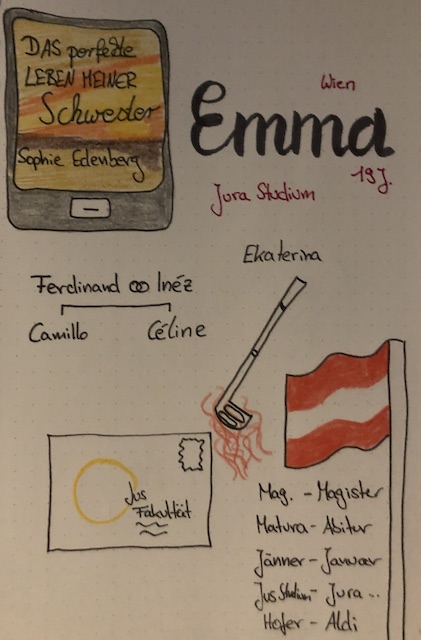 DAS perfekte
LEBEN MEINER
Schwester
Sophie Edenberg
Wien
Emma
19 J.
Jura Studium
Ekaterina
Ferdinand ⚭ Inéz
Camillo
Céline
Jus
Fakultät
Mag. - Magister
Matura - Abitur
Jänner - Januar
Jus Studium - Jura ...
Hofer - Aldi